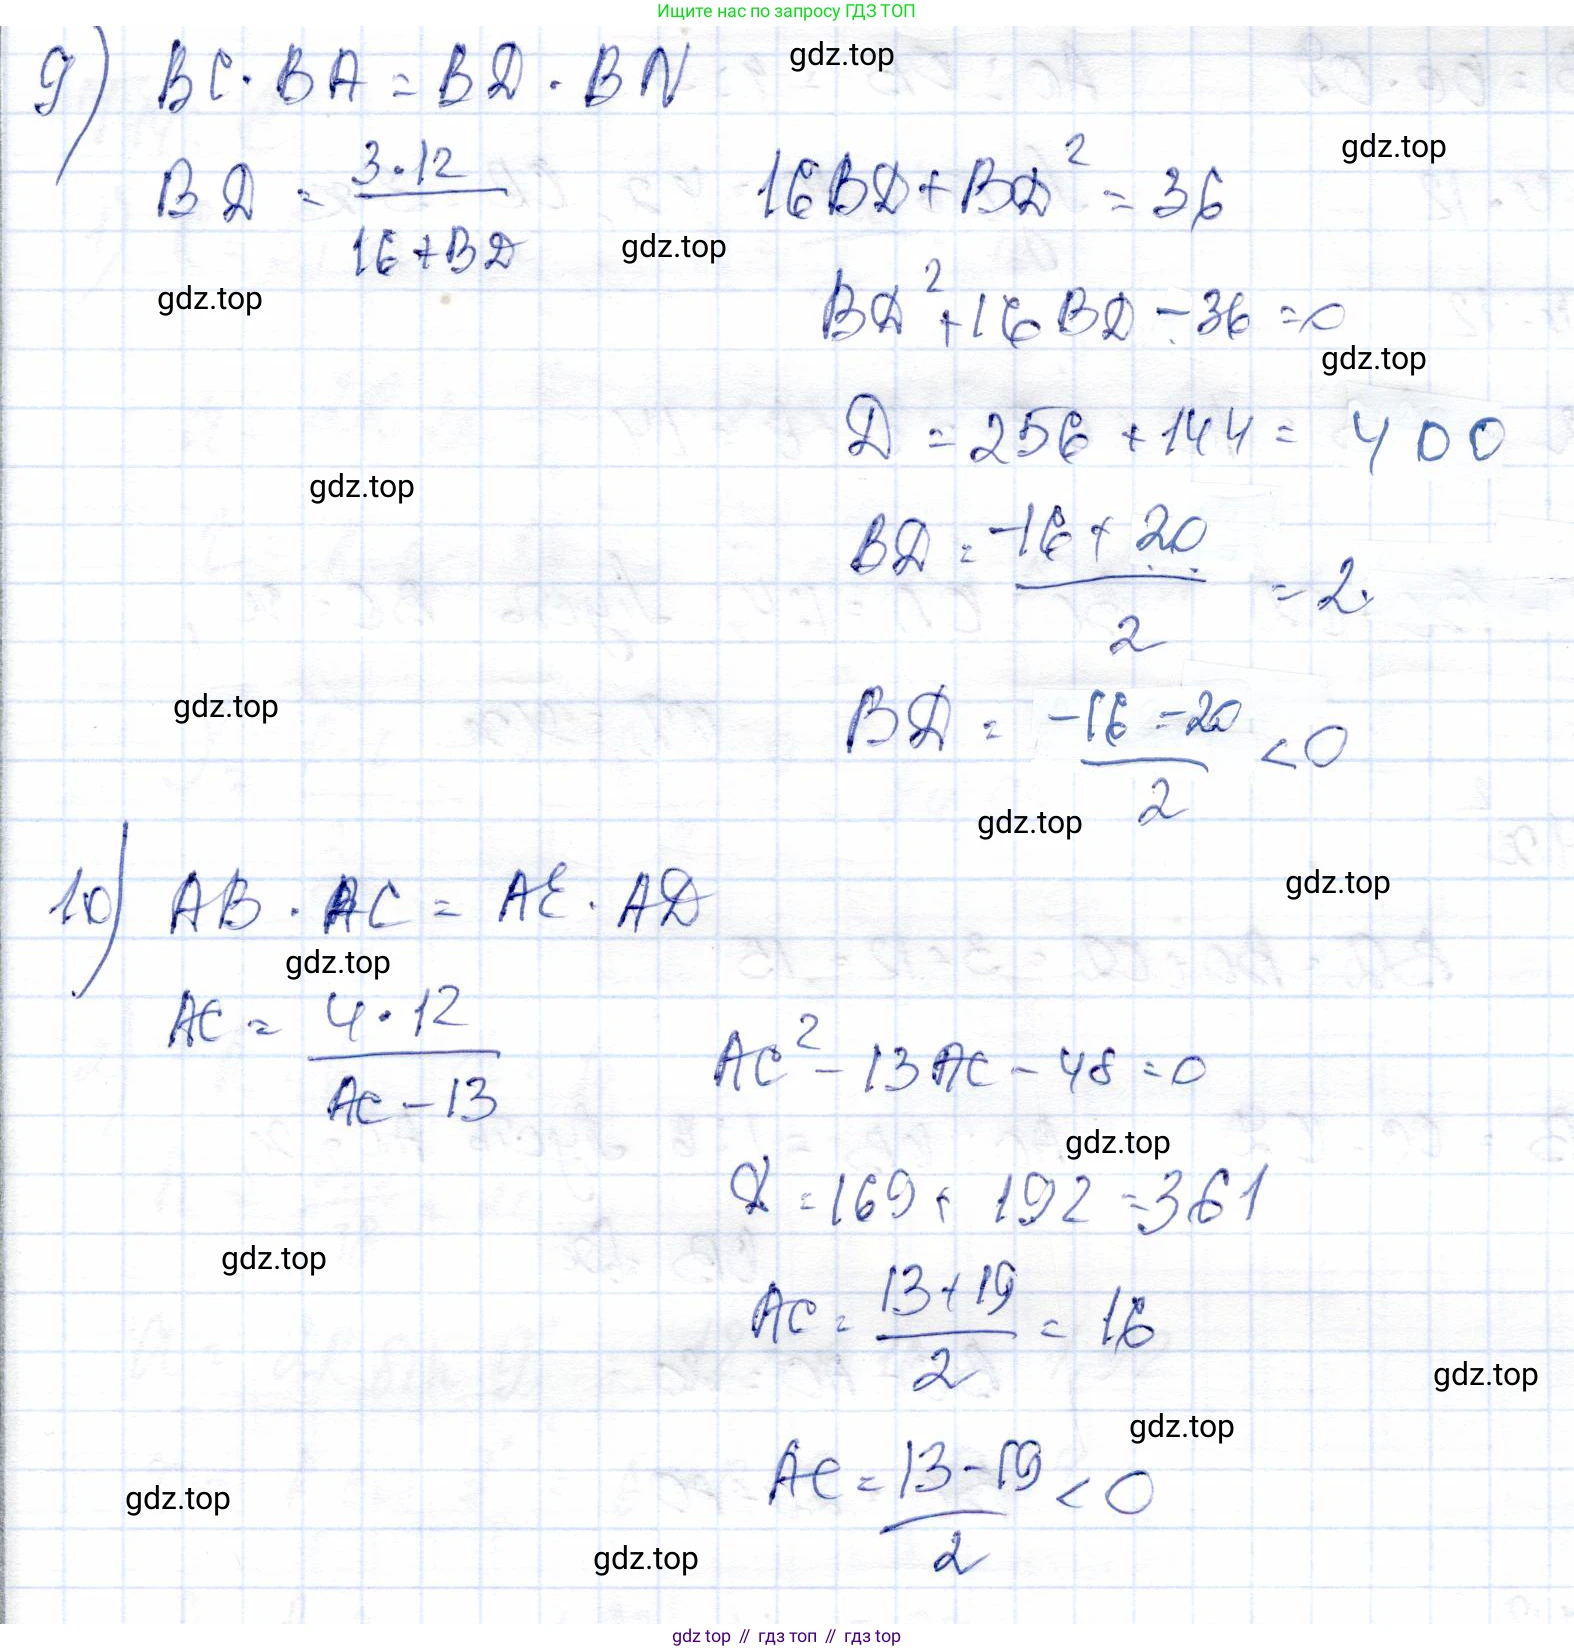 Ищите нас по запросу ГДЗ ТОП
9) BC · BA = BD · BN
gdz.top
BD = 3·12 / 16+BD
16BD + BD² = 36
gdz.top
gdz.top
gdz.top
BD² + 16BD - 36 = 0
gdz.top
D = 256 + 144 = 400
gdz.top
BD = -16 + 20 / 2 = 2.
gdz.top
BD = -16 - 20 / 2 < 0
gdz.top
gdz.top
10) AB · AC = AE · AD
gdz.top
AC = 4·12 / AC - 13
AC² - 13AC - 48 = 0
gdz.top
D = 169 + 192 = 361
gdz.top
AC = 13+19 / 2 = 16
gdz.top
gdz.top
AC = 13-19 / 2 < 0
gdz.top
gdz.top
gdz.top // гдз топ // гдз top